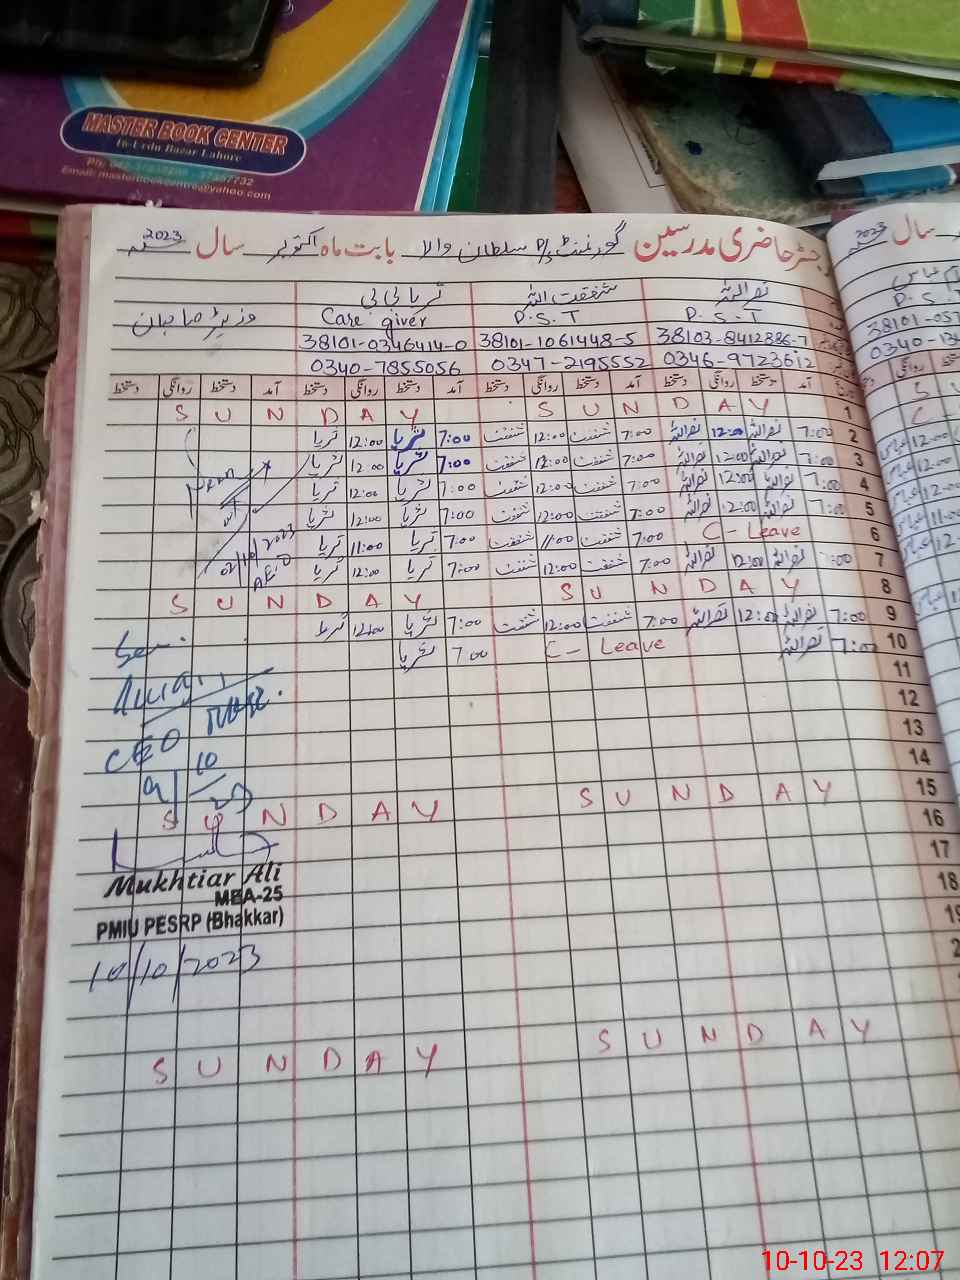 MASTER BOOK CENTER
16-Urdu Bazar Lahore
Email: masterbookcentre@yahoo.com
رجسٹر حاضری مدرسین گورنمنٹ P/S سلطان والا بابت ماہ اکتوبر سال 2023
سال 2023
نصراللہ شفقت اللہ ثریا بی بی
P.S.T P.S.T Care giver وزیٹر صاحبان
38103-8412886-7 38101-1061448-5 38101-0346414-0
0346-9723612 0347-2195552 0340-7855056
آمد دستخط روانگی دستخط آمد دستخط روانگی دستخط آمد دستخط روانگی دستخط آمد دستخط روانگی دستخط
1 SUNDAY SUNDAY
2 7:00 نصراللہ 12:00 نصراللہ 7:00 شفقت 12:00 شفقت 7:00 ثریا 12:00 ثریا
3 7:00 نصراللہ 12:00 نصراللہ 7:00 شفقت 12:00 شفقت 7:00 ثریا 12:00 ثریا
4 7:00 نصراللہ 12:00 نصراللہ 7:00 شفقت 12:00 شفقت 7:00 ثریا 12:00 ثریا
5 7:00 نصراللہ 12:00 نصراللہ 7:00 شفقت 12:00 شفقت 7:00 ثریا 12:00 ثریا
6 C-Leave 7:00 شفقت 11:00 شفقت 7:00 ثریا 11:00 ثریا
7 7:00 نصراللہ 12:00 نصراللہ 7:00 شفقت 12:00 شفقت 7:00 ثریا 12:00 ثریا
02/10/2023
AEO
8 SUNDAY SUNDAY
9 7:00 نصراللہ 12:00 نصراللہ 7:00 شفقت 12:00 شفقت 7:00 ثریا 12:00
10 7:00 نصراللہ C-Leave 7:00 ثریا
11
12
13
CEO
14
15 SUNDAY SUNDAY
16
17
18
Mukhtiar Ali
MEA-25
PMIU PESRP (Bhakkar)
10/10/2023
SUNDAY SUNDAY
10-10-23 12:07